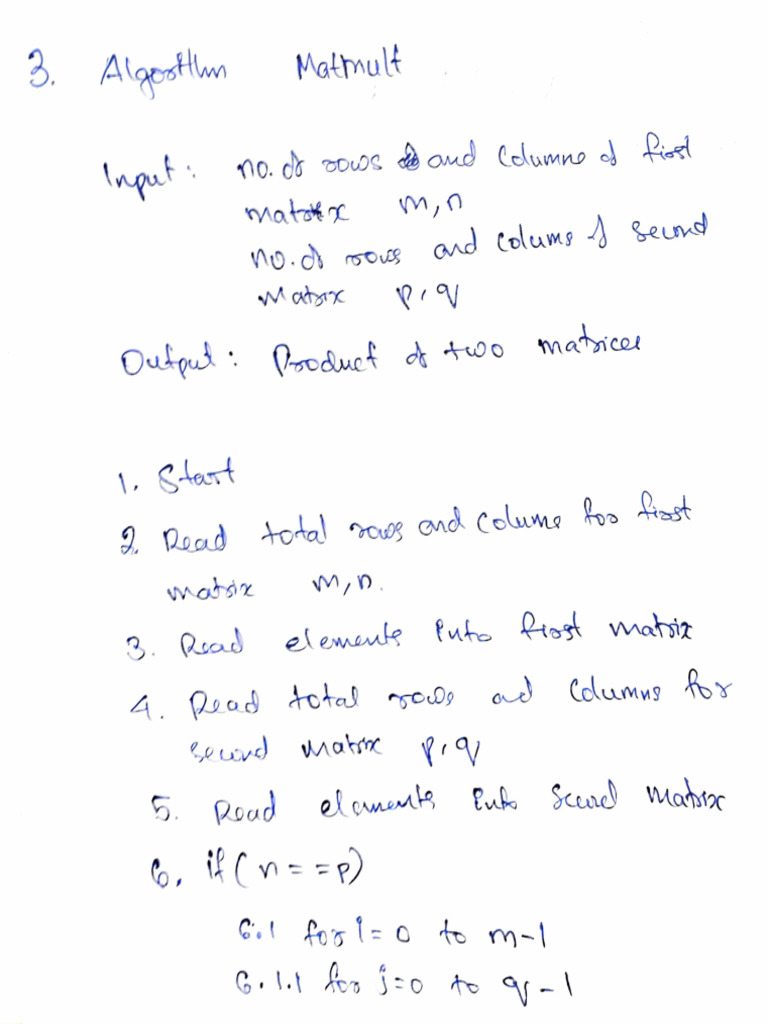 3. Algorithm Matmult
Input: no. of rows and columns of first
matrix m,n
no. of rows and colums of second
matrix p,q
Output: Product of two matrices
1. Start
2. Read total rows and colums for first
matrix m,n.
3. Read elements into first matrix
4. Read total rows ad columns for
second matrix p,q
5. Read elements into second matrix
6. if(n==p)
6.1 for i=0 to m-1
6.1.1 for j=0 to q-1